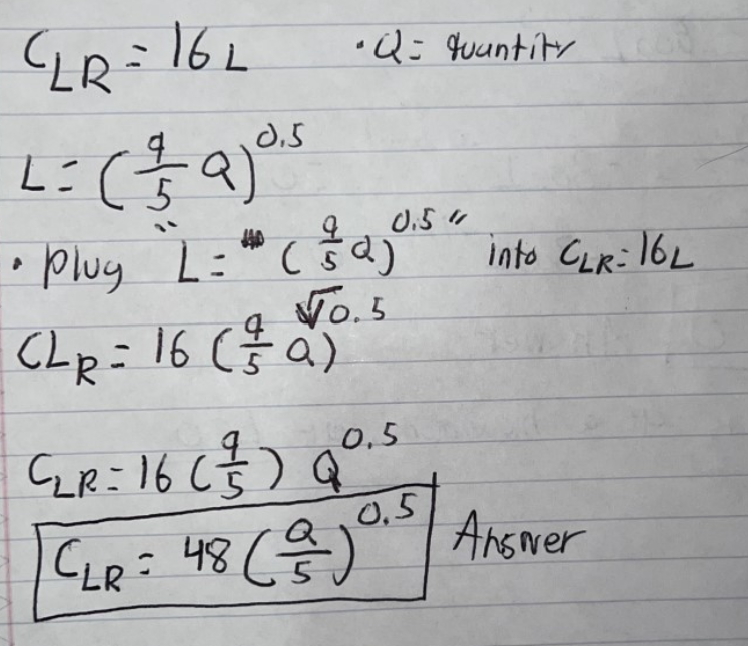 C_LR = 16L    • Q = quantity
L = (9/5 Q)^0.5
• plug "L = (9/5 Q)^0.5" into C_LR = 16L
CL_R = 16 (9/5 Q)^√0.5
C_LR = 16 (9/5) Q^0.5
C_LR = 48 (Q/5)^0.5    Answer